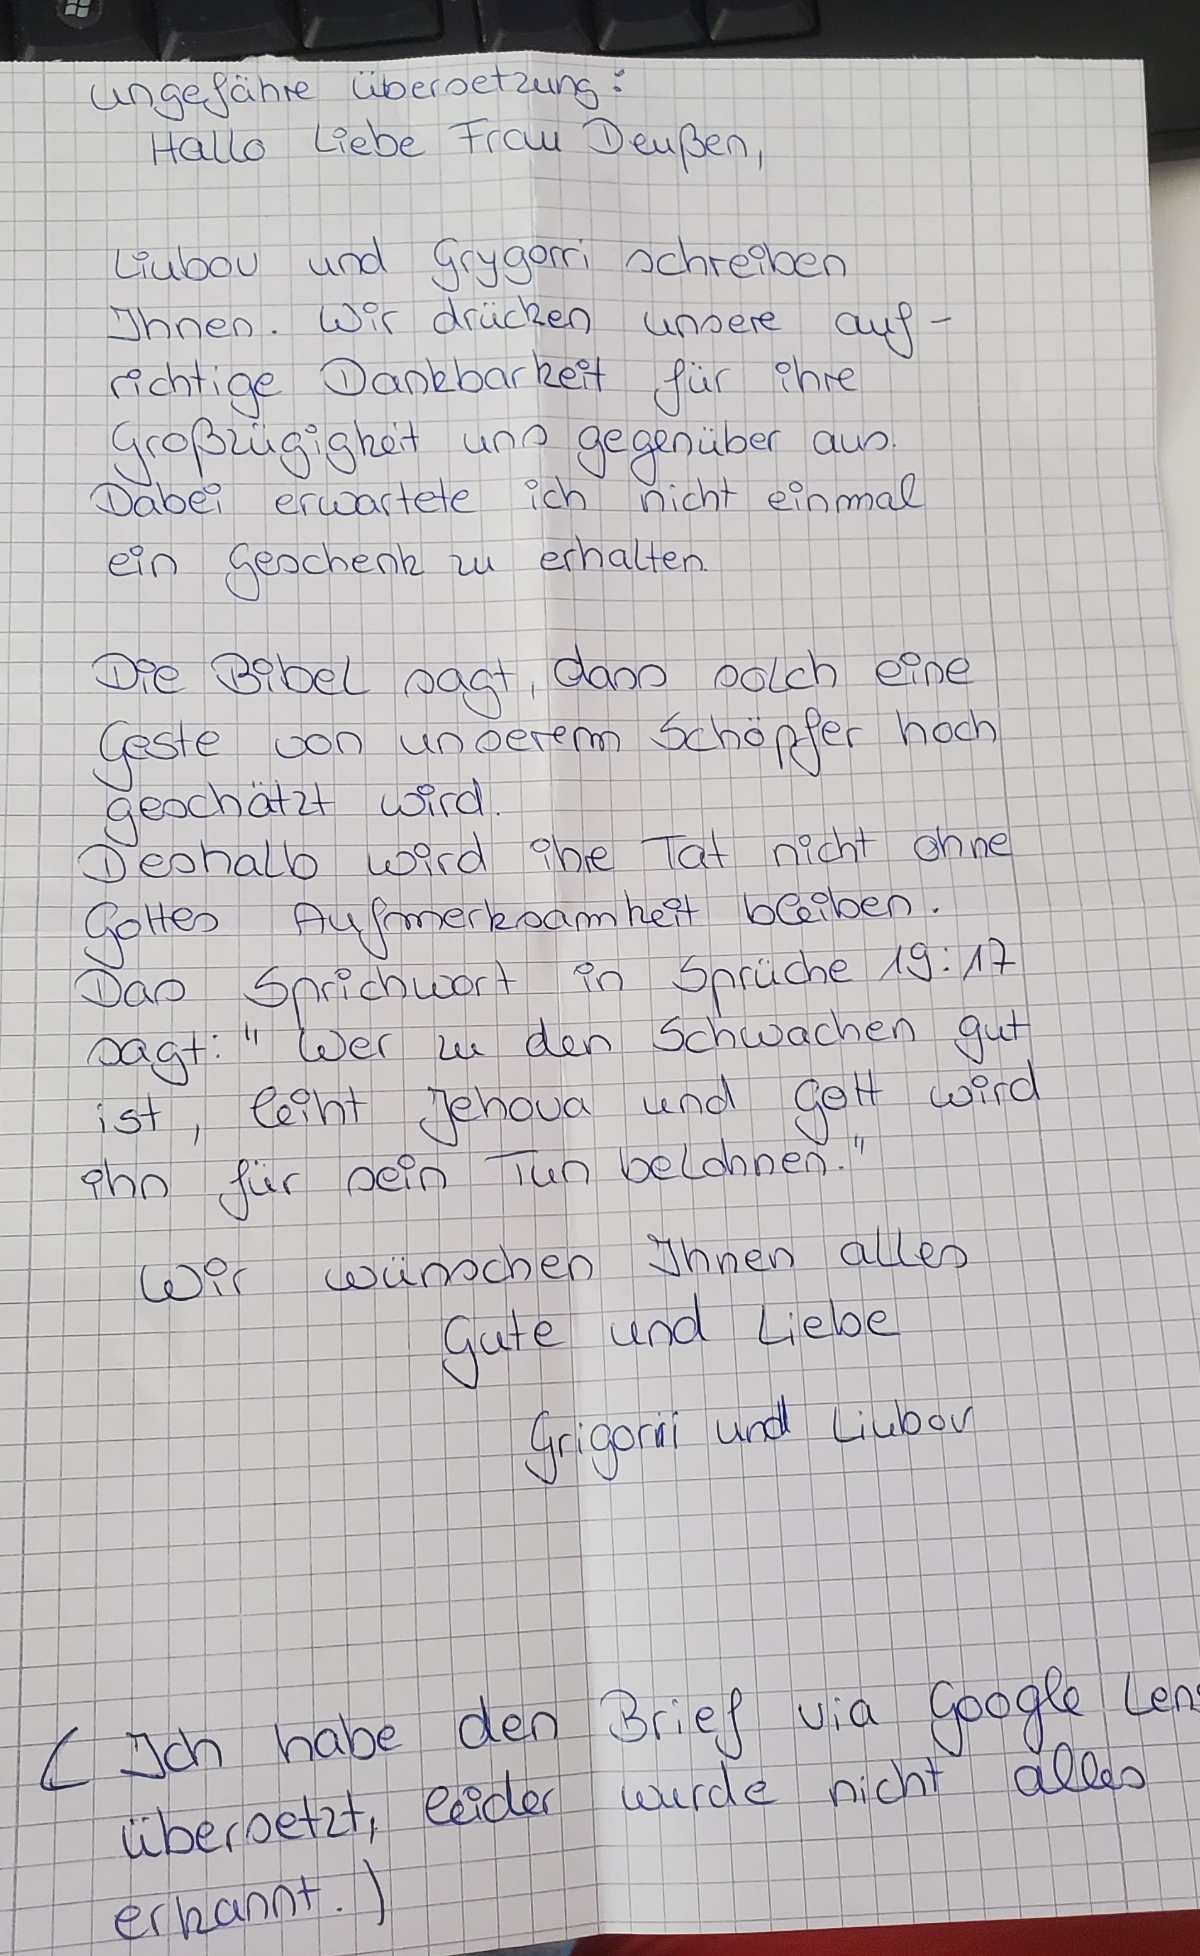 ungefähre Übersetzung:
Hallo Liebe Frau Deußen,
Liubov und Grygorri schreiben
Ihnen. Wir drücken unsere auf-
richtige Dankbarkeit für ihre
Großzügigkeit uns gegenüber aus.
Dabei erwartete ich nicht einmal
ein Geschenk zu erhalten.
Die Bibel sagt, dass solch eine
Geste von unserem Schöpfer hoch
geschätzt wird.
Deshalb wird ihre Tat nicht ohne
Gottes Aufmerksamkeit bleiben.
Das Sprichwort in Sprüche 19:17
sagt: "Wer zu den Schwachen gut
ist, leiht Jehova und Gott wird
ihn für sein Tun belohnen."
Wir wünschen Ihnen alles
Gute und Liebe
Grigorii und Liubov
(Ich habe den Brief via Google Lens
übersetzt, leider wurde nicht alles
erkannt.)